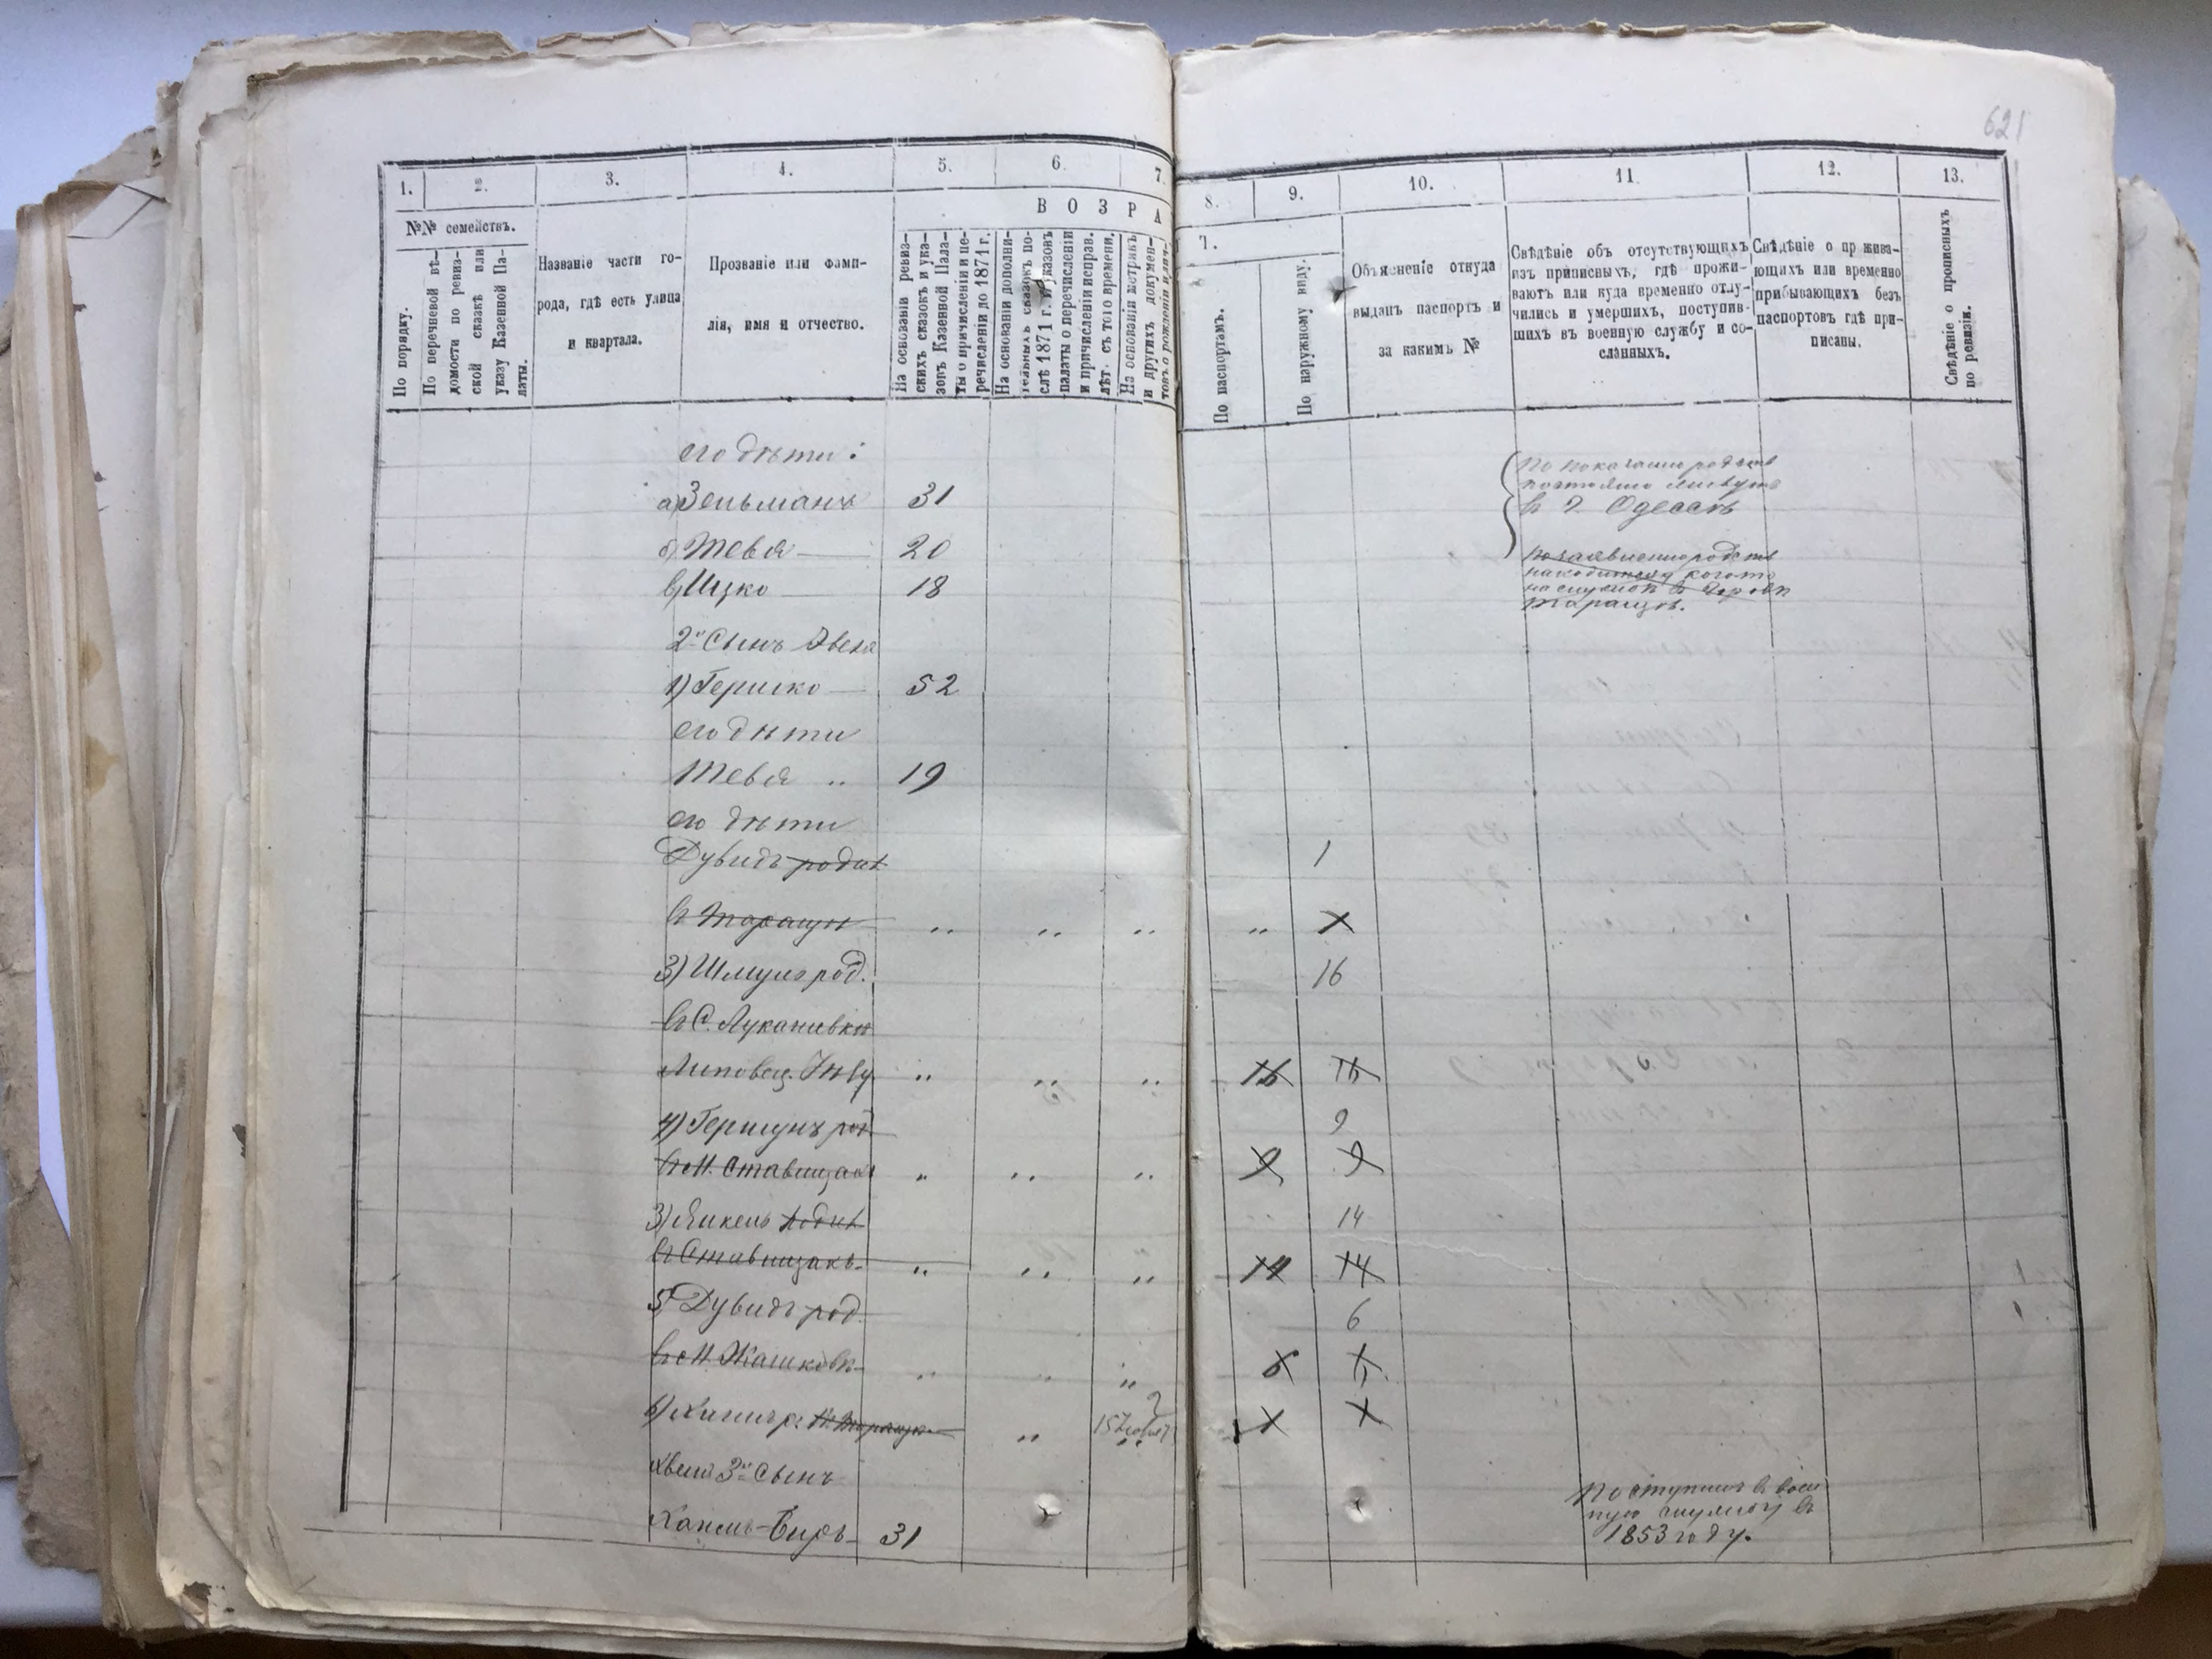 621
1. 2. 3. 4. 5. 6. 7. 8. 9. 10. 11. 12. 13.
В О З Р А
7.
№№ семействъ.
По порядку.
По перечневой вѣ-
домости по ревиз-
ской сказкѣ или
указу Казенной Па-
латы.
Названіе части го-
рода, гдѣ есть улица
и квартала.
Прозваніе или фами-
лія, имя и отчество.
На основаніи ревиз-
скихъ сказокъ и ука-
зовъ Казенной Пала-
ты о причисленіи и пе-
речисленіи до 1871 г.
На основаніи дополни-
тельныхъ сказокъ по-
слѣ 1871 г. и указовъ
палаты о перечисленіи
и причисленіи исправ.
лѣт. съ того времени.
На основаніи метрикъ
и другихъ докумен-
товъ о рожденіи и лич-
По паспортамъ.
По наружному виду.
Объясненіе откуда
выданъ паспортъ и
за какимъ №
Свѣдѣніе объ отсутствующихъ
изъ приписныхъ, гдѣ прожи-
ваютъ или куда временно отлу-
чились и умершихъ, поступив-
шихъ въ военную службу и со-
сланныхъ.
Свѣдѣніе о прожива-
ющихъ или временно
прибывающихъ безъ
паспортовъ гдѣ при-
писаны.
Свѣдѣніе о прописныхъ
по ревизіи.
его дѣти:
По показанію родств
постоянно живутъ
въ г. Одессѣ
а) Зельманъ 31
б) Тевя 20
по заявленію родств
находится
на службѣ въ
таращѣ.
в) Ицко 18
2й Сынъ
1) Гершко 52
его дѣти
Тевя 19
его дѣти
Дувидъ родил 1
въ Таращѣ
3) Шмуль род. 16
въ С. Лукашовкѣ
Липовец. уѣз. 16 16
4) Гершунъ род 9
въ м. Ставищахъ 9 9
3) Янкель родил 14
въ Ставищахъ 14 14
5) Дувидъ род. 6
въ м. Жашковѣ 6
6) въ Таращѣ
3й Сынъ
31
Поступилъ въ воен
ную службу въ
1853 году.